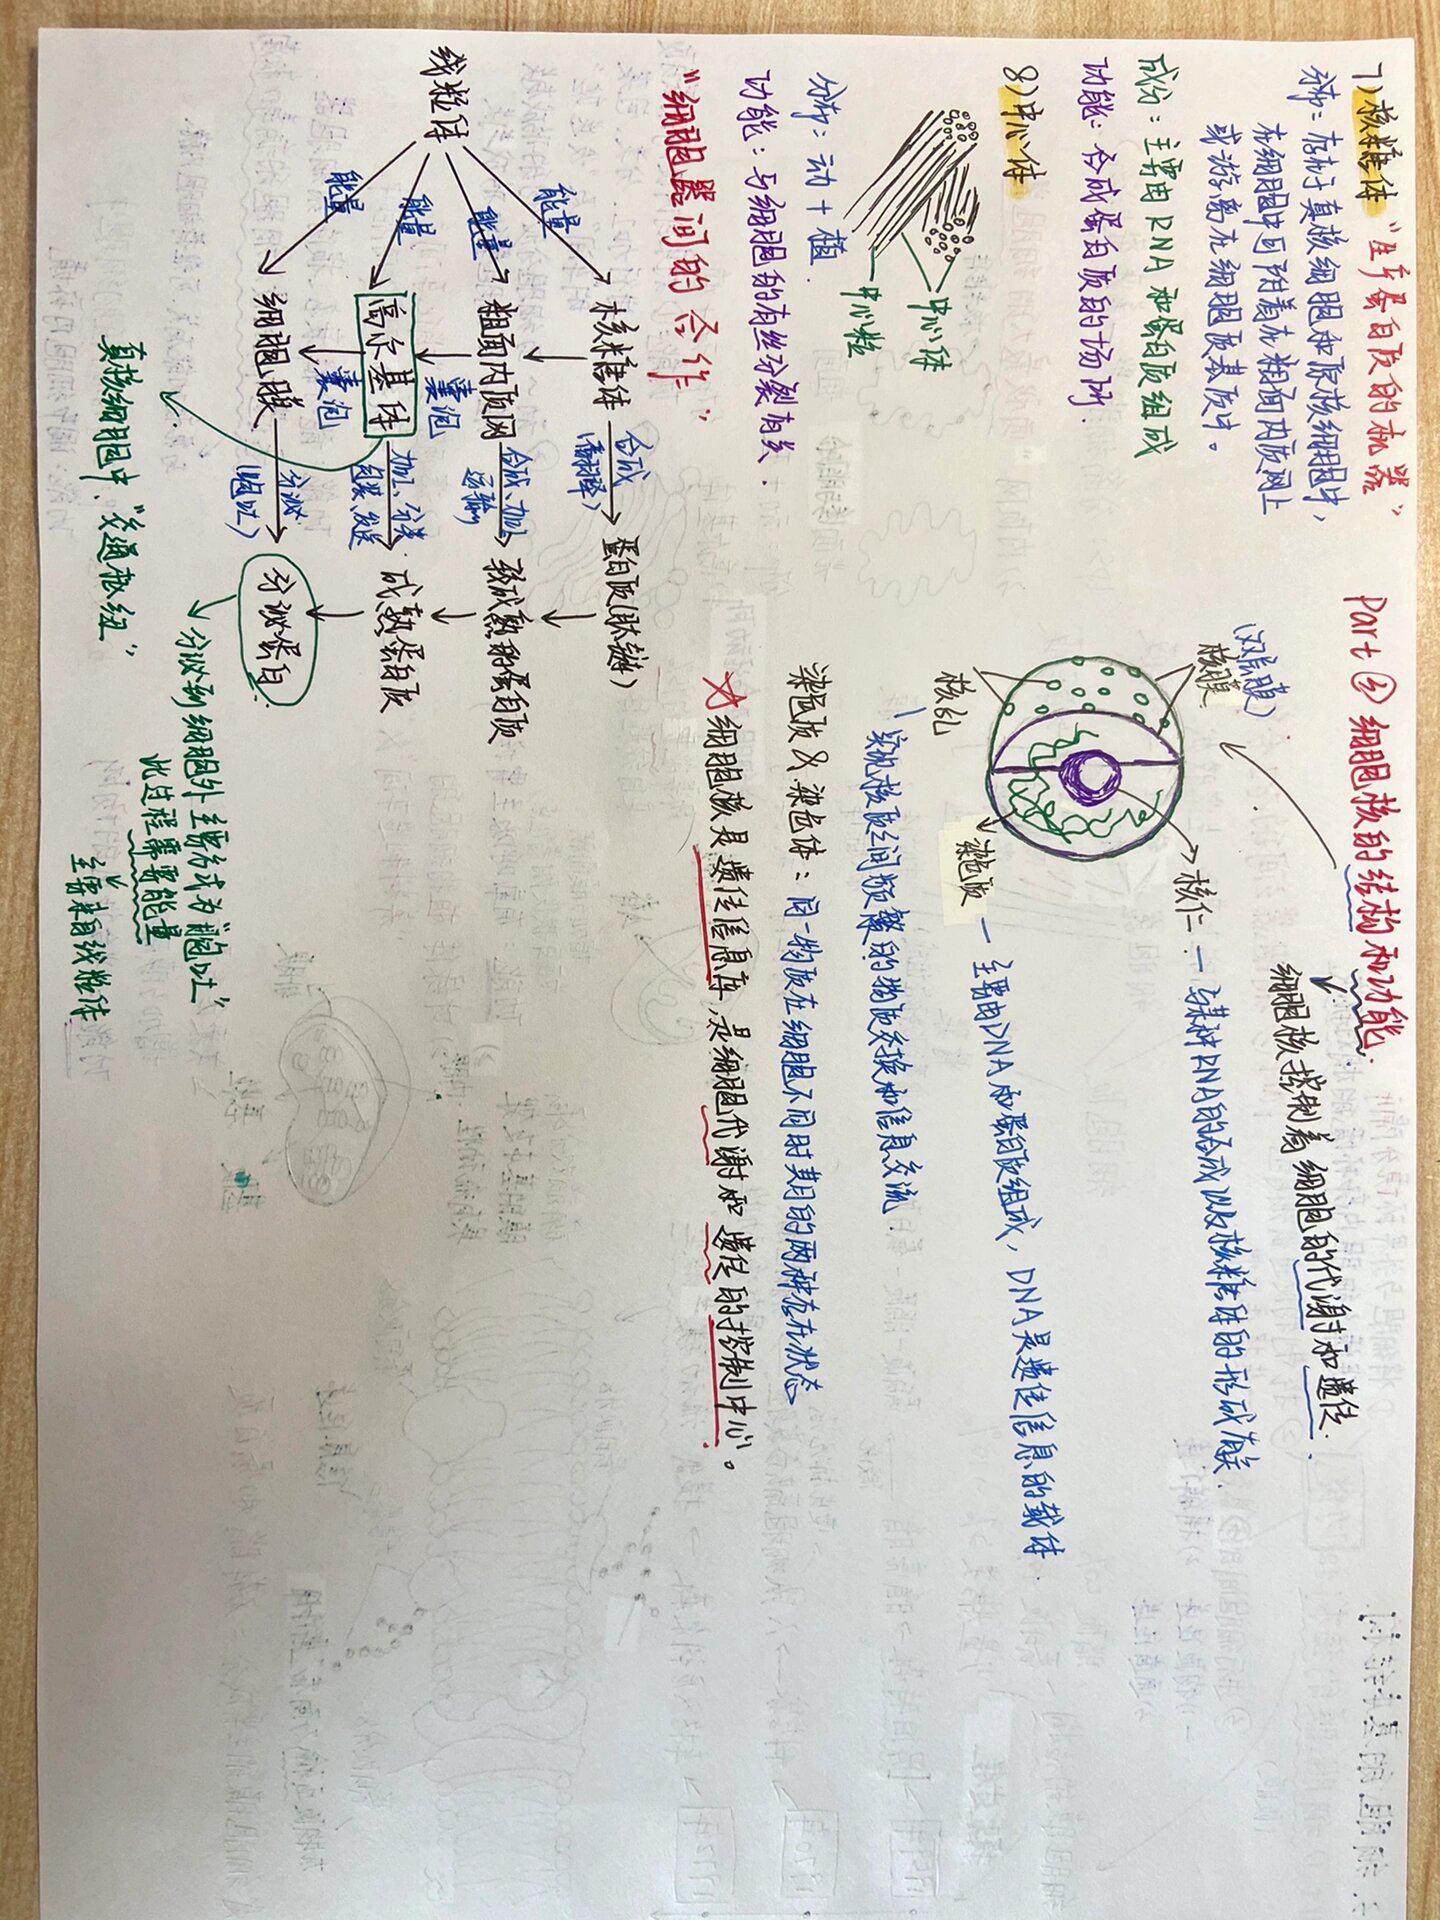 7)核糖体 "生产蛋白质的机器"
分布：存在于真核细胞和原核细胞中，
在细胞中可附着在粗面内质网上
或游离在细胞质基质中。
成分：主要由RNA和蛋白质组成
功能：合成蛋白质的场所.
8)中心体
中心体
中心粒
分布：动+植.
功能：与细胞的有丝分裂有关.
"细胞器间的合作"
线粒体
能量
能量
能量
能量
核糖体
合成
(翻译)
蛋白质(肽链)
粗面内质网
合成、加工
运输
较成熟的蛋白质
囊泡
高尔基体
加工、分类.
包装、发送
成熟蛋白质
囊泡
细胞膜
分泌
(胞吐)
分泌蛋白
真核细胞中,"交通枢纽"
分泌到细胞外主要方式为"胞吐"
此过程需要能量
主要来自线粒体
Part ③ 细胞核的结构和功能.
细胞核控制着细胞的代谢和遗传.
(双层膜)
核膜
核仁 — 与某种RNA的合成以及核糖体的形成有关.
核孔
染色质 — 主要由DNA和蛋白质组成，DNA是遗传信息的载体.
实现核质之间频繁的物质交换和信息交流.
染色质&染色体：同一物质在细胞不同时期的两种存在状态
细胞核是遗传信息库,是细胞代谢和遗传的控制中心。